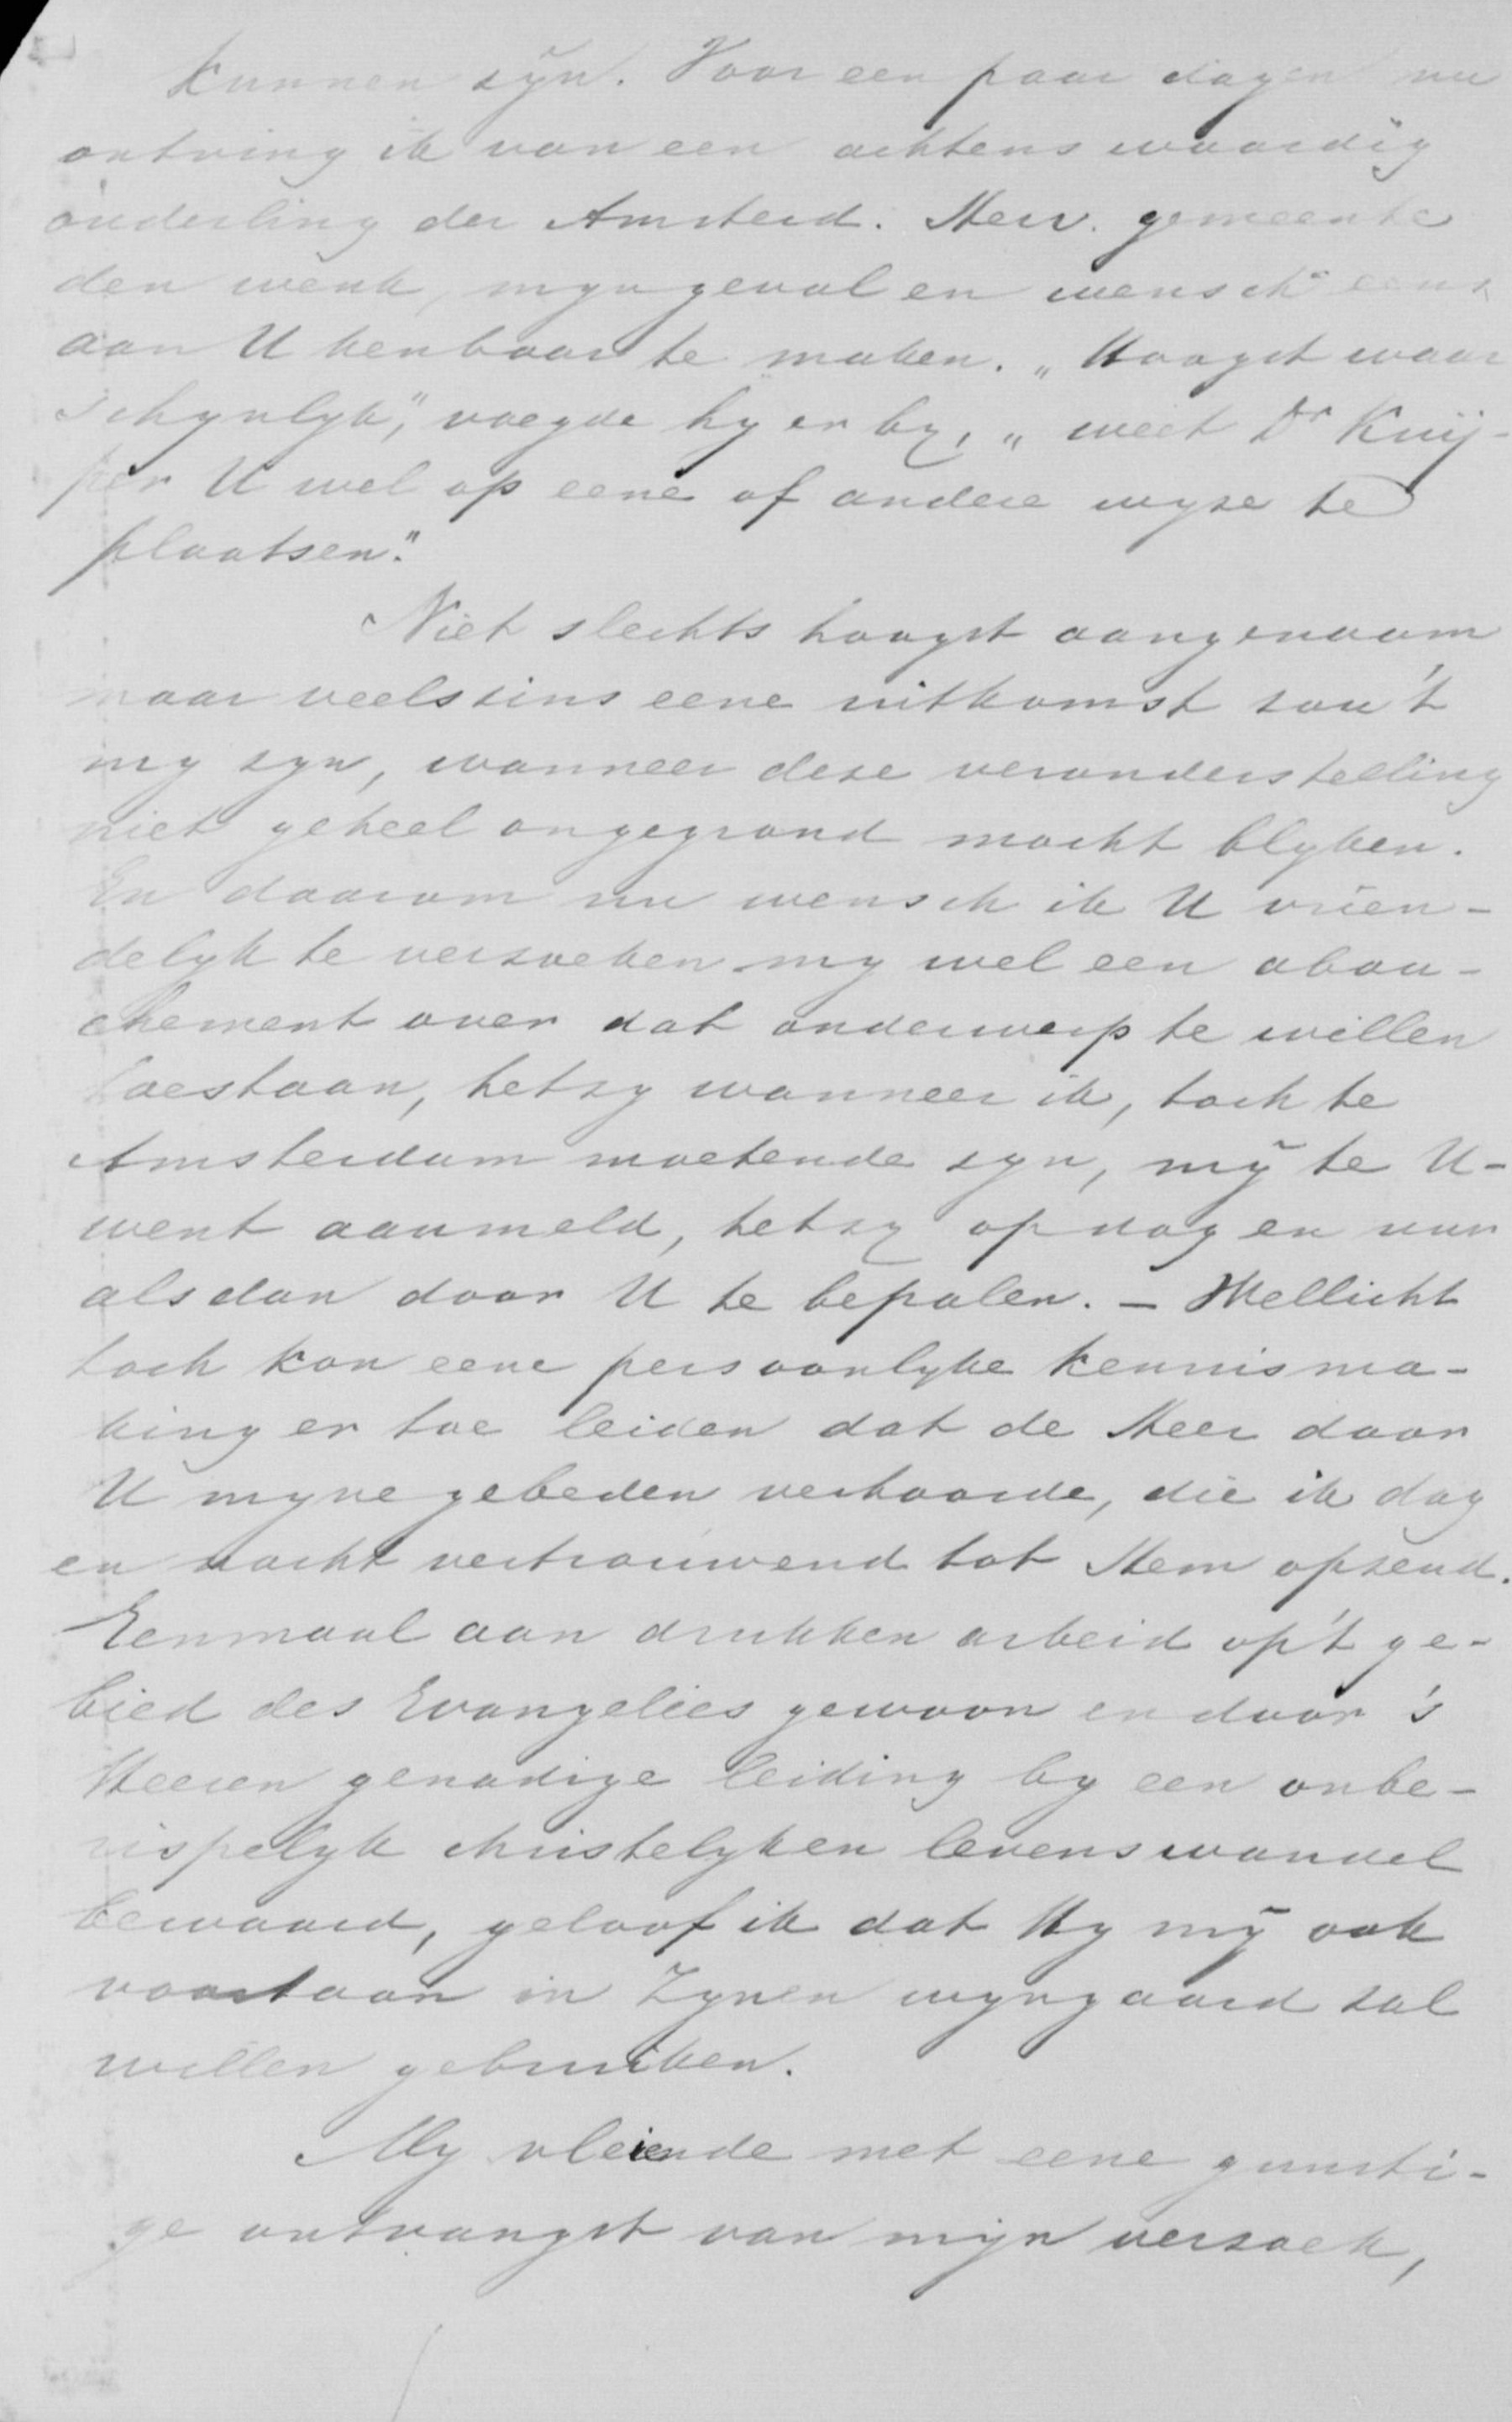 kunnen zijn. Voor een paar dagen nu
ontving ik van een achtenswaardig
ouderling der Amsterd. Herv. gemeente
den wenk, myn geval en wensch eens
aan U kenbaar te maken. „Hoogst waar
schynlyk", voegde hy er by, „weet Dr Kuij-
per U wel op eene of andere wyze te
plaatsen".
Niet slechts hoogst aangenaam
maar veelszins eene uitkomst zou 't
my zyn, wanneer deze veronderstelling
niet geheel ongegrond mocht blyken.
En daarom nu wensch ik U vrien-
delyk te verzoeken my wel een abou-
chement over dat onderwerp te willen
toestaan, hetzy wanneer ik, toch te
Amsterdam moetende zyn, mij te U-
went aanmeld, hetzy op dag en uur
alsdan door U te bepalen. — Wellicht
toch kon eene persoonlyke kennisma-
king er toe leiden dat de Heer door
U myne gebeden verhoorde, die ik dag
en nacht vertrouwend tot Hem opzend.
Eenmaal aan drukken arbeid op 't ge-
bied des Evangelies gewoon en door 's
Heeren genadige leiding by een onbe-
rispelyk christelyken levenswandel
bewaard, geloof ik dat Hy mij ook
voortaan in Zynen wyngaard zal
willen gebruiken.
My vleiende met eene gunsti-
ge ontvangst van mijn verzoek,